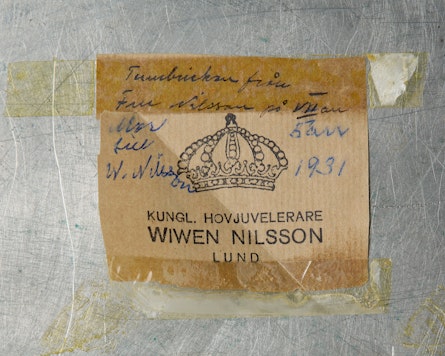 Tennbrickan från
Fru Nilsson på VII an
Mor
till
W. Nilsson
1931
KUNGL. HOVJUVELERARE
WIWEN NILSSON
LUND